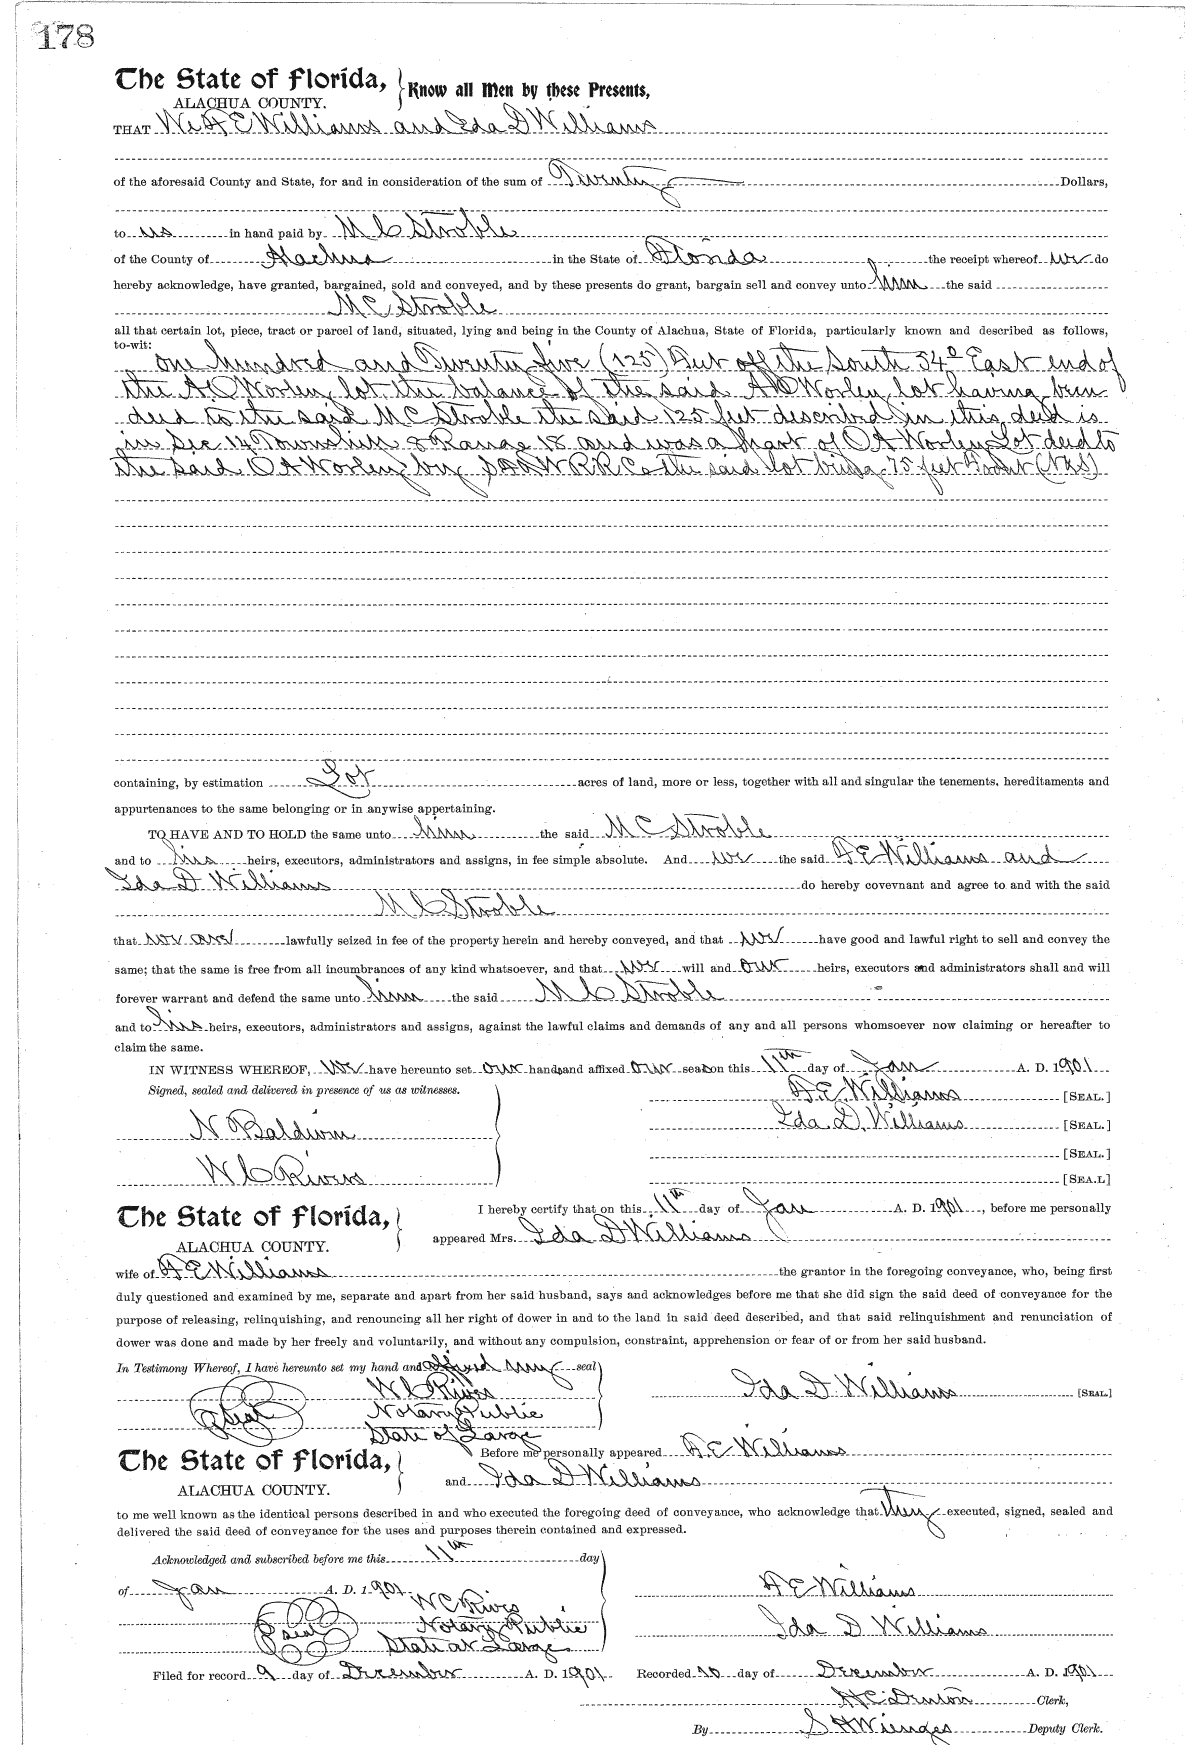 178
The State of Florida, Know all Men by these Presents,
ALACHUA COUNTY.
THAT We A E Williams and Ida D Williams
of the aforesaid County and State, for and in consideration of the sum of Twenty Dollars,
to us in hand paid by M C Stroble
of the County of Alachua in the State of Florida the receipt whereof we do
hereby acknowledge, have granted, bargained, sold and conveyed, and by these presents do grant, bargain sell and convey unto him the said
M C Stroble
all that certain lot, piece, tract or parcel of land, situated, lying and being in the County of Alachua, State of Florida, particularly known and described as follows,
to-wit:
One hundred and Twenty five (125) feet off the South 54° East end of
the A O Worley lot, the balance of the said A O Worley lot having been
deed to the said M C Stroble the said 125 feet described in this deed is
in Sec 14 Township 8 Range 18 and was a part of O A Worley Lot deed to
the said O A Worley by R R Co the said lot being 75 feet
containing, by estimation Lot acres of land, more or less, together with all and singular the tenements, hereditaments and
appurtenances to the same belonging or in anywise appertaining.
TO HAVE AND TO HOLD the same unto him the said M C Stroble
and to his heirs, executors, administrators and assigns, in fee simple absolute. And we the said A E Williams and
Ida D Williams do hereby covevnant and agree to and with the said
M C Stroble
that we are lawfully seized in fee of the property herein and hereby conveyed, and that we have good and lawful right to sell and convey the
same; that the same is free from all incumbrances of any kind whatsoever, and that we will and our heirs, executors and administrators shall and will
forever warrant and defend the same unto him the said M C Stroble
and to his heirs, executors, administrators and assigns, against the lawful claims and demands of any and all persons whomsoever now claiming or hereafter to
claim the same.
IN WITNESS WHEREOF, we have hereunto set our hands and affixed our seals on this 11th day of Jan A. D. 1901
Signed, sealed and delivered in presence of us as witnesses. A. E. Williams [SEAL.]
N Baldwin Ida D. Williams [SEAL.]
[SEAL.]
W C Rivers [SEA.L]
The State of Florida, I hereby certify that on this 11th day of Jan A. D. 1901, before me personally
ALACHUA COUNTY. appeared Mrs. Ida D Williams
wife of A E Williams the grantor in the foregoing conveyance, who, being first
duly questioned and examined by me, separate and apart from her said husband, says and acknowledges before me that she did sign the said deed of conveyance for the
purpose of releasing, relinquishing, and renouncing all her right of dower in and to the land in said deed described, and that said relinquishment and renunciation of
dower was done and made by her freely and voluntarily, and without any compulsion, constraint, apprehension or fear of or from her said husband.
In Testimony Whereof, I have hereunto set my hand and affixed my seal
W C Rivers Ida D Williams [SEAL.]
Seal Notary Public
State of Large
The State of Florida, Before me personally appeared A. E Williams
ALACHUA COUNTY. and Ida D Williams
to me well known as the identical persons described in and who executed the foregoing deed of conveyance, who acknowledge that they executed, signed, sealed and
delivered the said deed of conveyance for the uses and purposes therein contained and expressed.
Acknowledged and subscribed before me this 11th day
of Jan A. D. 1901 A E Williams
W C Rivers
Seal Notary Public Ida D Williams
State at Large
Filed for record 9 day of December A. D. 1901 Recorded 10 day of December A. D. 1901
H C Denton Clerk,
By S H Wienges Deputy Clerk.